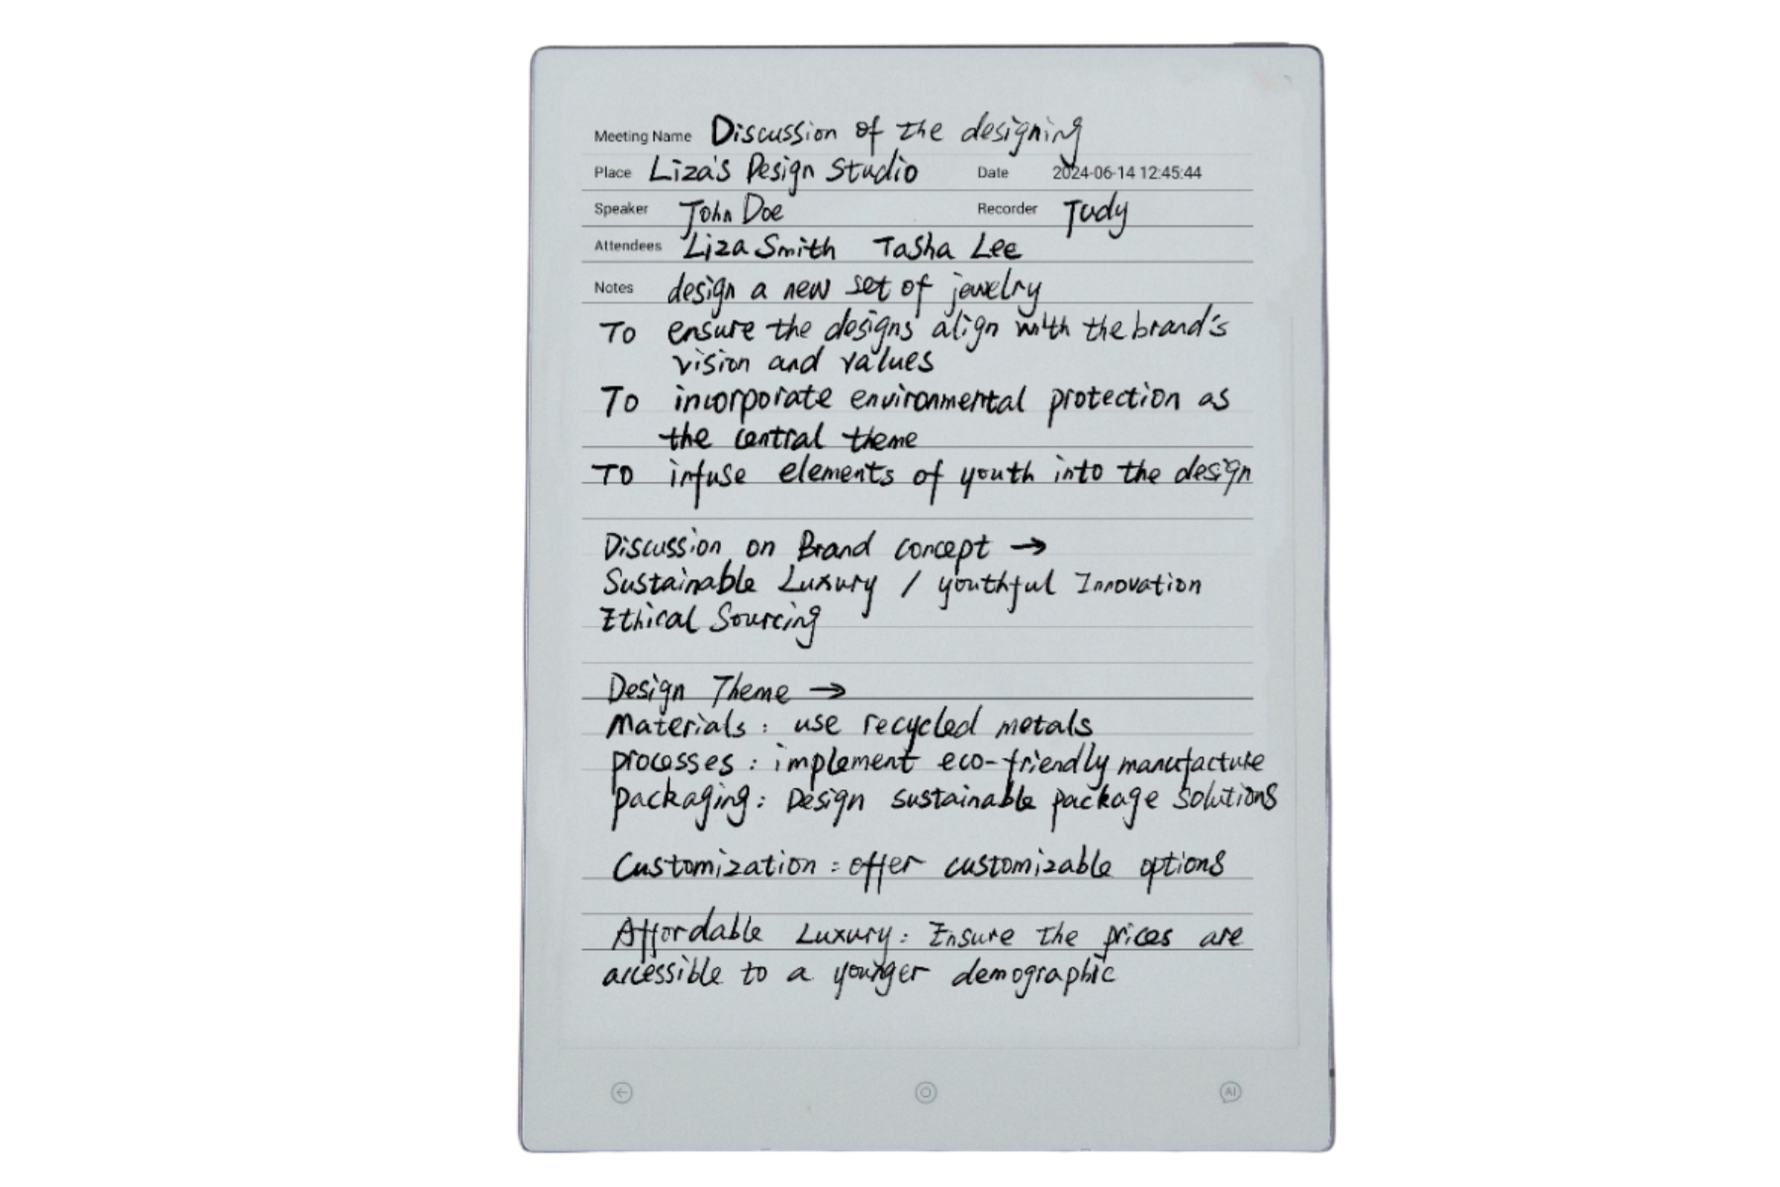 Meeting Name Discussion of the designing
Place Liza's Design Studio Date 2024-06-14 12:45:44
Speaker John Doe Recorder Judy
Attendees Liza Smith Tasha Lee
Notes design a new set of jewelry
To ensure the designs align with the brand's
vision and values
To incorporate environmental protection as
the central theme
To infuse elements of youth into the design
Discussion on Brand concept →
Sustainable Luxury / youthful Innovation
Ethical Sourcing
Design Theme →
Materials: use recycled metals
processes: implement eco-friendly manufacture
packaging: Design sustainable package solutions
Customization: offer customizable options
Affordable Luxury: Ensure the prices are
accessible to a younger demographic
AI